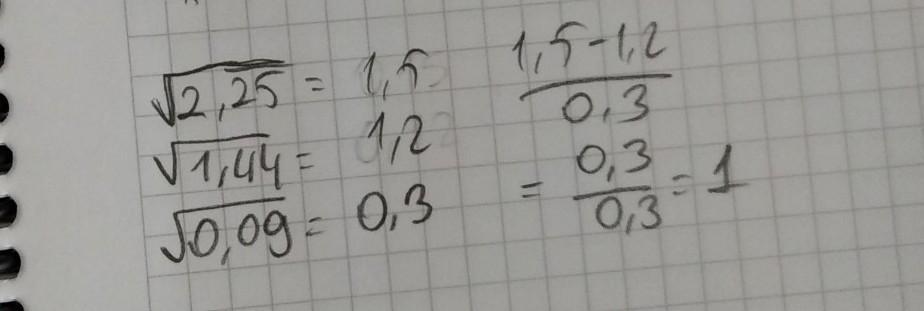 √2,25 = 1,5
√1,44 = 1,2
√0,09 = 0,3
1,5-1,2
0,3
= 0,3
0,3
= 1